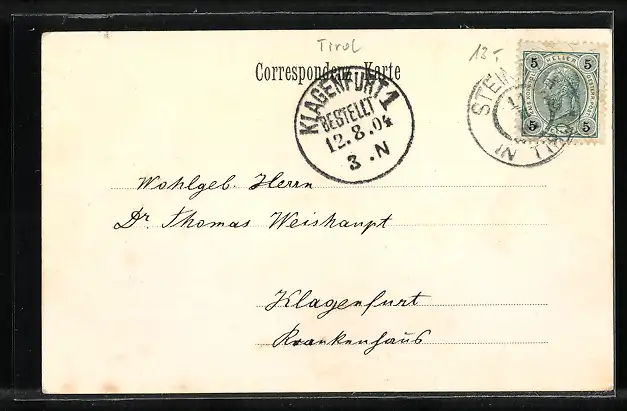 Tirol
13-
Correspondenz-Karte
KLAGENFURT 1
BESTELLT
12.8.04
3.N
5 HELLER 5
5 5
IN TIROL
Wohlgeb. Herrn
Dr. Thomas Weishaupt
Klagenfurt
Krankenhaus